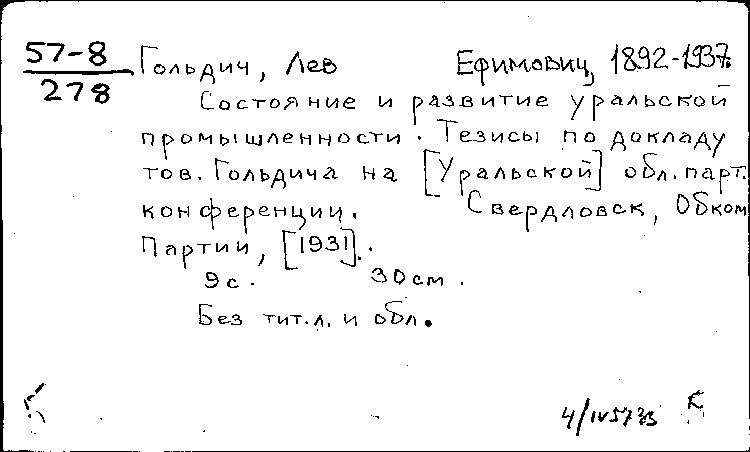 57-8 Гольдич, Лев Ефимович, 1892-1937.
278
Состояние и развитие уральской
промышленности. Тезисы по докладу
тов. Гольдича на [Уральской] обл. парт.
конференции. Свердловск, Обком
Партии, [1931].
9 с. 30 см.
Без тит.л. и обл.